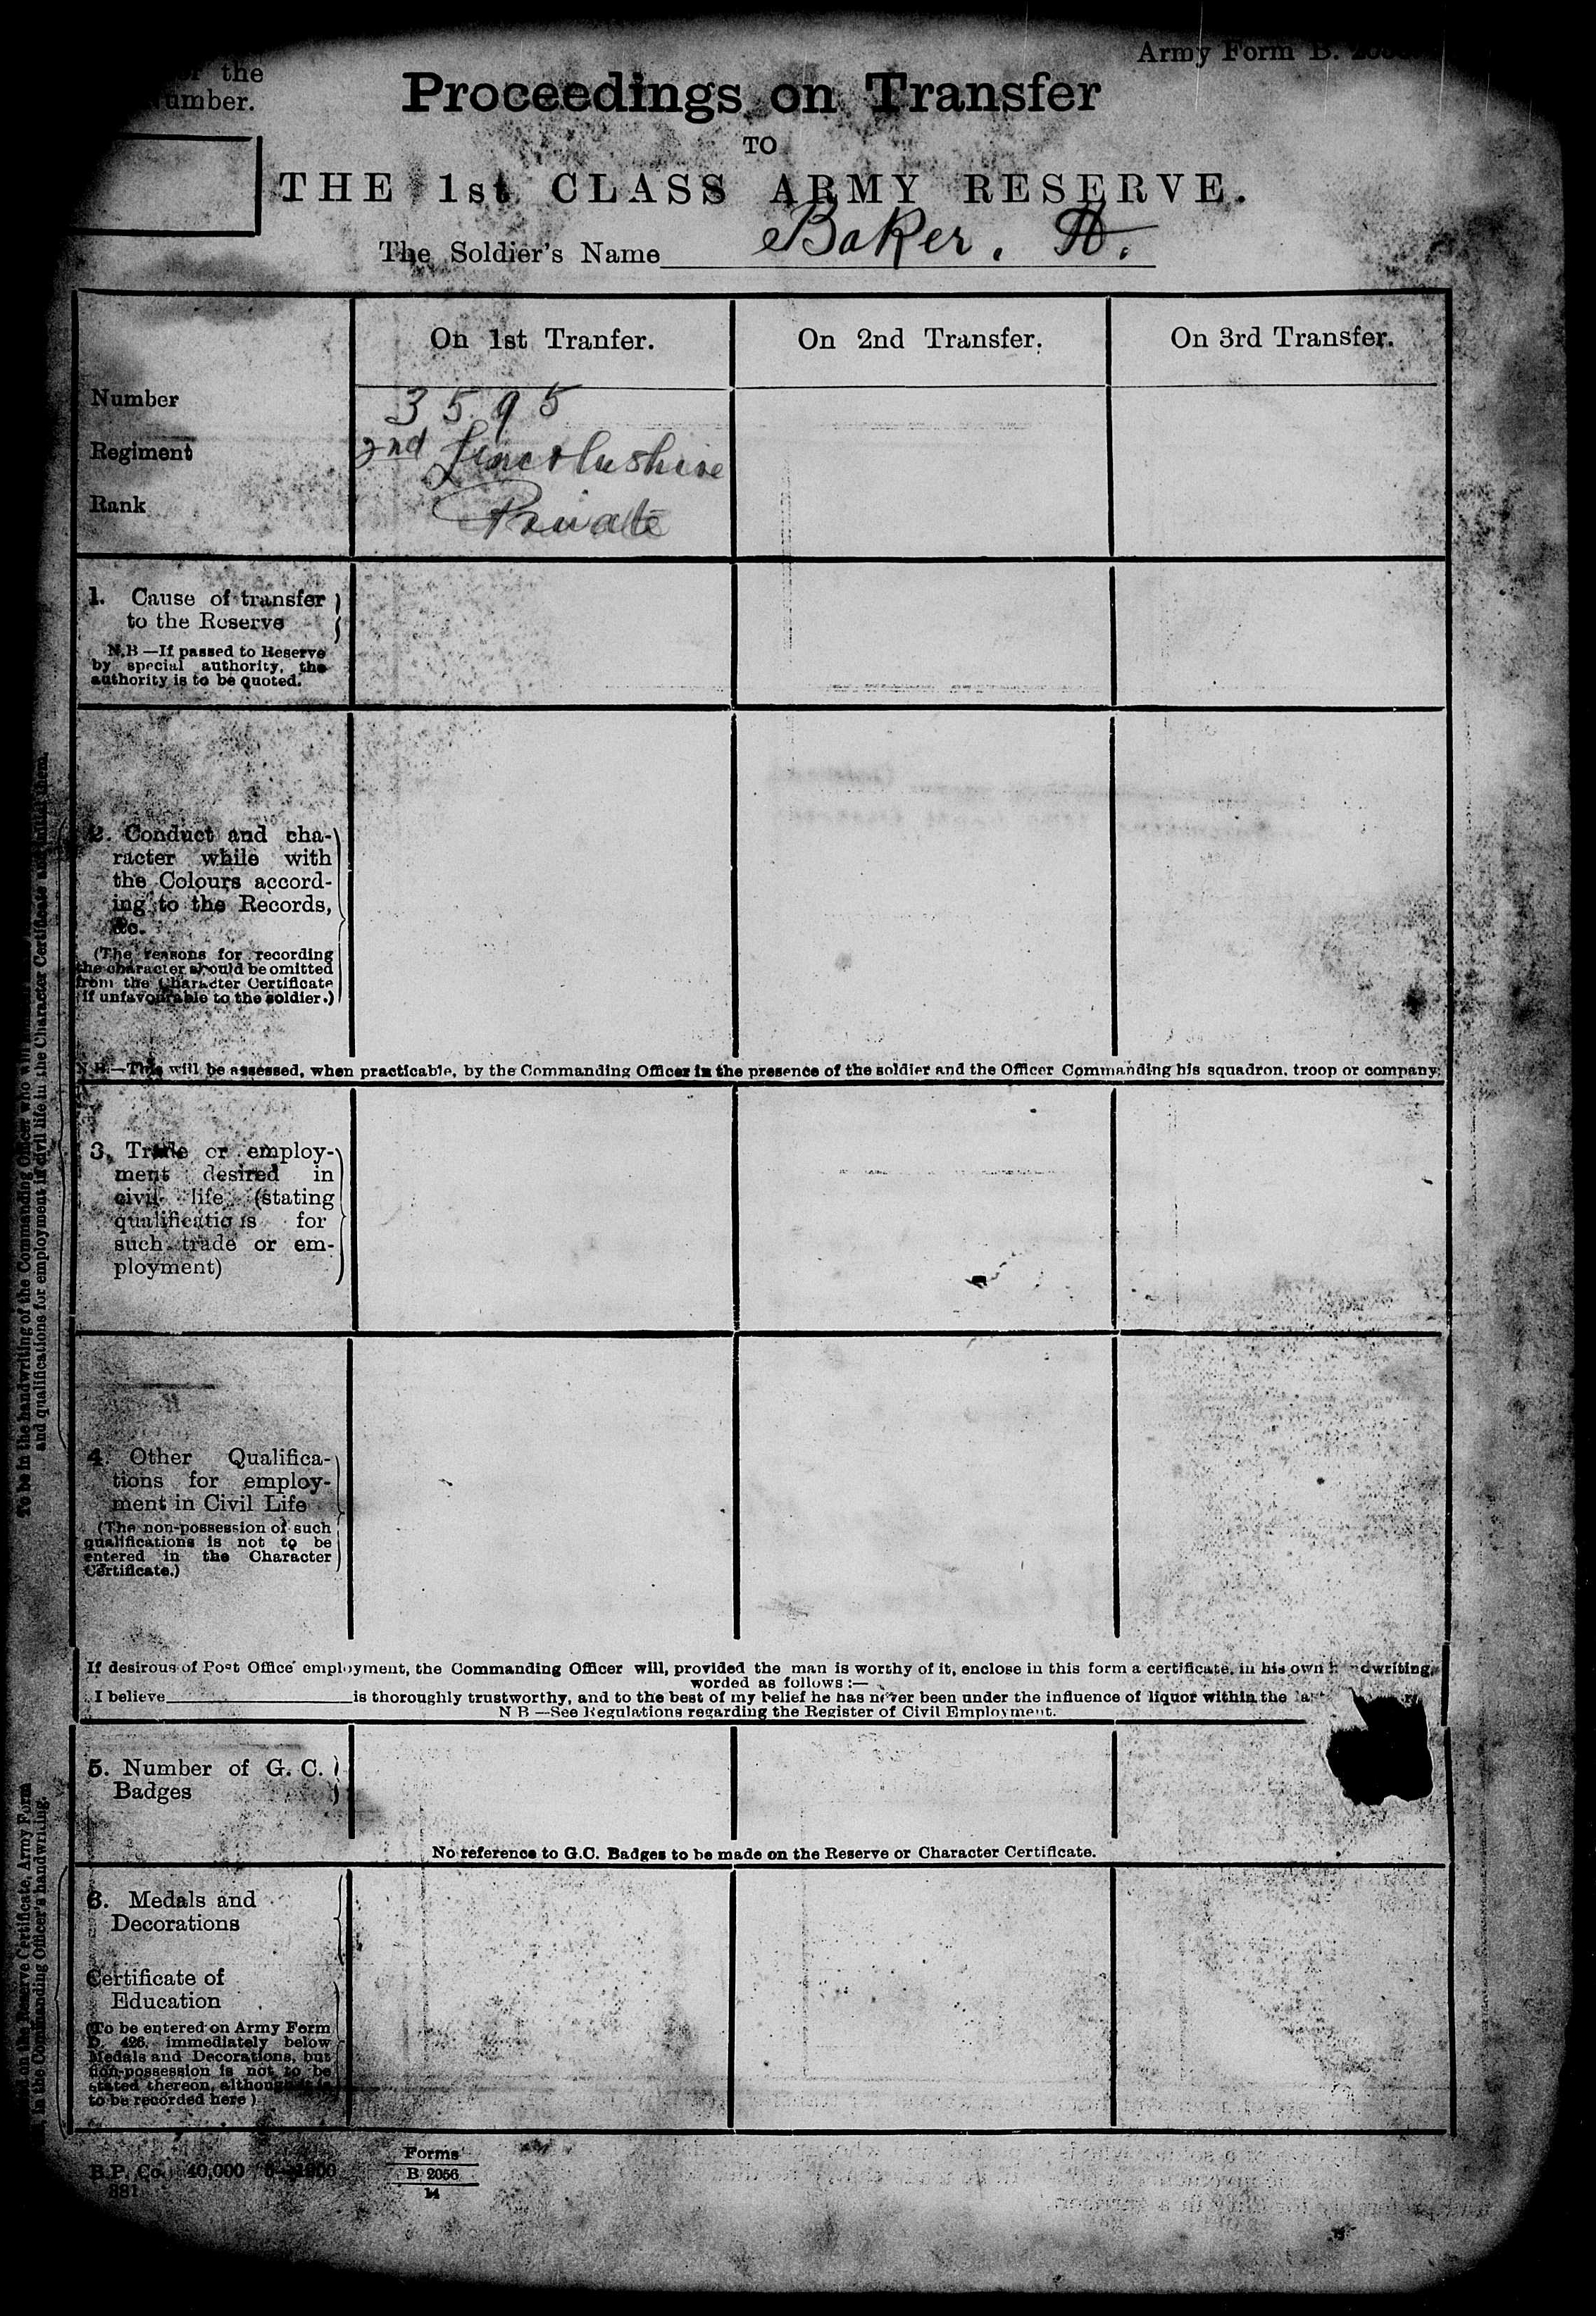 the
umber.
Army Form B.
Proceedings on Transfer
TO
THE 1st CLASS ARMY RESERVE.
The Soldier's Name Baker. A.
On 1st Tranfer.
On 2nd Transfer.
On 3rd Transfer.
Number
3595
Regiment
2nd Lincolnshire
Rank
Private
1. Cause of transfer
to the Reserve
N.B—If passed to Reserve
by special authority, the
authority is to be quoted.
2. Conduct and cha-
racter while with
the Colours accord-
ing to the Records,
&c.
(The reasons for recording
the character should be omitted
from the Character Certificate
if unfavourable to the soldier.)
N.B.—This will be assessed, when practicable, by the Commanding Officer in the presence of the soldier and the Officer Commanding his squadron, troop or company.
3. Trade or employ-
ment desired in
civil life (stating
qualifications for
such trade or em-
ployment)
4. Other Qualifica-
tions for employ-
ment in Civil Life
(The non-possession of such
qualifications is not to be
entered in the Character
Certificate.)
If desirous of Post Office employment, the Commanding Officer will, provided the man is worthy of it, enclose in this form a certificate, in his own handwriting,
worded as follows :—
I believe is thoroughly trustworthy, and to the best of my belief he has never been under the influence of liquor within the
N B —See Regulations regarding the Register of Civil Employment.
5. Number of G. C.
Badges
No reference to G.C. Badges to be made on the Reserve or Character Certificate.
6. Medals and
Decorations
Certificate of
Education
(To be entered on Army Form
D. 426, immediately below
Medals and Decorations, but
non-possession is not to be
stated thereon, although
to be recorded here)
B.P. Co. 40,000
881
Forms
B 2056
14
To be in the handwriting of the Commanding Officer who will
and qualifications for employment in civil life in the Character Certificate and initial them.
on the Reserve Certificate, Army Form
in the Commanding Officer's handwriting.